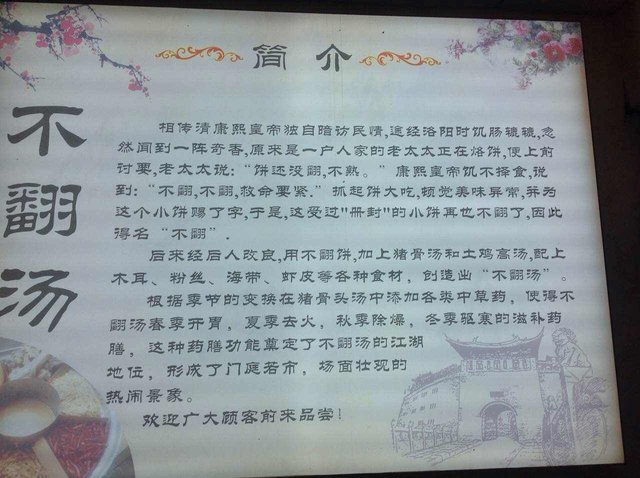 简介
不翻汤
相传清康熙皇帝独自暗访民情,途经洛阳时饥肠辘辘,忽
然闻到一阵奇香,原来是一户人家的老太太正在烙饼,便上前
讨要,老太太说:“饼还没翻,不熟。”康熙皇帝饥不择食,说
到:“不翻,不翻,救命要紧.”抓起饼大吃,顿觉美味异常,并为
这个小饼赐了字,于是,这受过"册封"的小饼再也不翻了,因此
得名“不翻”.
后来经后人改良,用不翻饼,加上猪骨汤和土鸡高汤,配上
木耳、粉丝、海带、虾皮等各种食材,创造出“不翻汤”。
根据季节的变换在猪骨头汤中添加各类中草药,使得不
翻汤春季开胃,夏季去火,秋季除燥,冬季驱寒的滋补药
膳,这种药膳功能奠定了不翻汤的江湖
地位,形成了门庭若市,场面壮观的
热闹景象。
欢迎广大顾客前来品尝!